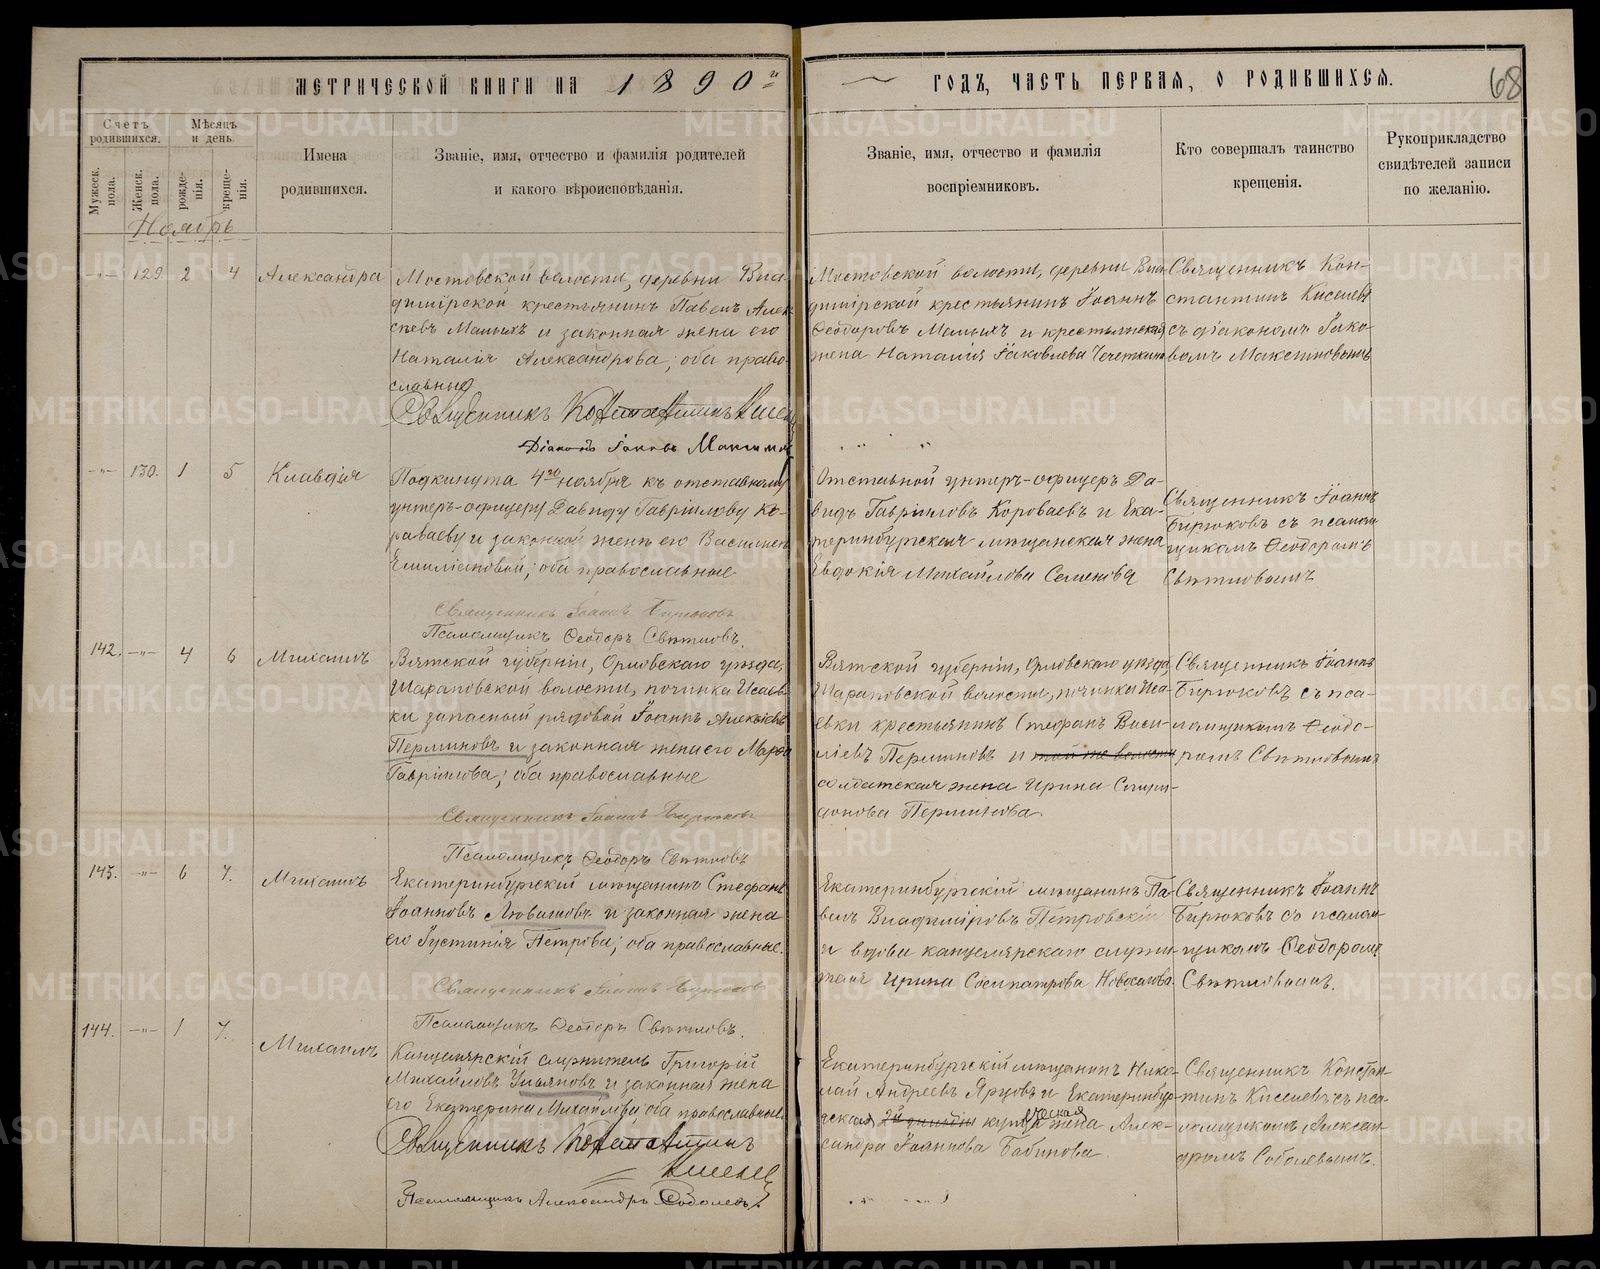 МЕТРИЧЕСКОЙ КНИГИ НА 1890й ГОДЪ, ЧАСТЬ ПЕРВАЯ, О РОДИВШИХСЯ.
68
Счетъ родившихся.
Мужеск. пола.
Женск. пола.
Мѣсяцъ и день.
рожденія.
крещенія.
Имена родившихся.
Званіе, имя, отчество и фамилія родителей
и какого вѣроисповѣданія.
Званіе, имя, отчество и фамилія
воспріемниковъ.
Кто совершалъ таинство
крещенія.
Рукоприкладство
свидѣтелей записи
по желанію.
Ноябрь
-"- 129. 2 4 Александра
Мостовской волости, деревни Вла-
димірской крестьянинъ Павелъ Алек-
сѣевъ Малыхъ и законная жена его
Наталія Александрова; оба право-
славные
Священникъ Константинъ Кисел
Діаконъ Іаковъ Максимов
Мостовской волости, деревни Вла-
димірской крестьянинъ Іоаннъ
Ѳеодоровъ Малыхъ и крестьянская
жена Наталія Іаковлева Чечеткина
Священникъ Кон-
стантинъ Киселевъ
съ діакономъ Іако-
вомъ Максимовымъ
-"- 130. 1 5 Клавдія
Подкинута 4го ноября къ отставному
унтеръ-офицеру Давиду Гавріилову Ко-
роваеву и законной женѣ его Василисѣ
Емиліановой; оба православные
Священникъ Іоаннъ Бирюковъ
Псаломщикъ Ѳеодоръ Свѣтловъ.
Отставной унтеръ-офицеръ Да-
видъ Гавріиловъ Короваевъ и Ека-
теринбургская мѣщанская жена
Евдокія Михайлова Семенова
Священникъ Іоаннъ
Бирюковъ съ псалом-
щикомъ Ѳеодоромъ
Свѣтловымъ
142. -"- 4 6 Михаилъ
Вятской губерніи, Орловскаго уѣзда,
Шараповской волости, починка Исаев-
ки запасный рядовой Іоаннъ Алексѣевъ
Перминовъ и законная жена его Марѳа
Гавріилова; оба православные
Священникъ Іоаннъ Бирюковъ
Псаломщикъ Ѳеодоръ Свѣтловъ
Вятской губерніи, Орловскаго уѣзда,
Шараповской волости, починка Иса-
евки крестьянинъ Стефанъ Васи-
ліевъ Перминовъ и той же волости
солдатская жена Ирина Спири-
донова Перминова.
Священникъ Іоаннъ
Бирюковъ съ пса-
ломщикомъ Ѳеодо-
ромъ Свѣтловымъ
143. -"- 6 7. Михаилъ
Екатеринбургскій мѣщанинъ Стефанъ
Іоанновъ Любимовъ и законная жена
его Іустинія Петрова; оба православные.
Священникъ Іоаннъ Бирюковъ
Псаломщикъ Ѳеодоръ Свѣтловъ.
Екатеринбургскій мѣщанинъ Па-
велъ Владиміровъ Петровскій
и вдова канцелярскаго служи-
теля Ирина Сосипатрова Новоселова.
Священникъ Іоаннъ
Бирюковъ со псалом-
щикомъ Ѳеодоромъ
Свѣтловымъ.
144. -"- 1 7. Михаилъ
Канцелярскій служитель Григорій
Михайловъ Ульяновъ и законная жена
его Екатерина Михайлова; оба православные
Священникъ Константинъ
Киселев
Псаломщикъ Александръ Соболевъ.
Екатеринбургскій мѣщанинъ Нико-
лай Андреевъ Ярцовъ и Екатеринбур-
гская 2й гильдіи купеческая жена Алек-
сандра Іоаннова Бабинова.
Священникъ Констан-
тинъ Киселевъ съ пса-
ломщикомъ Алексан-
дромъ Соболевымъ.
METRIKI.GASO-URAL.RU